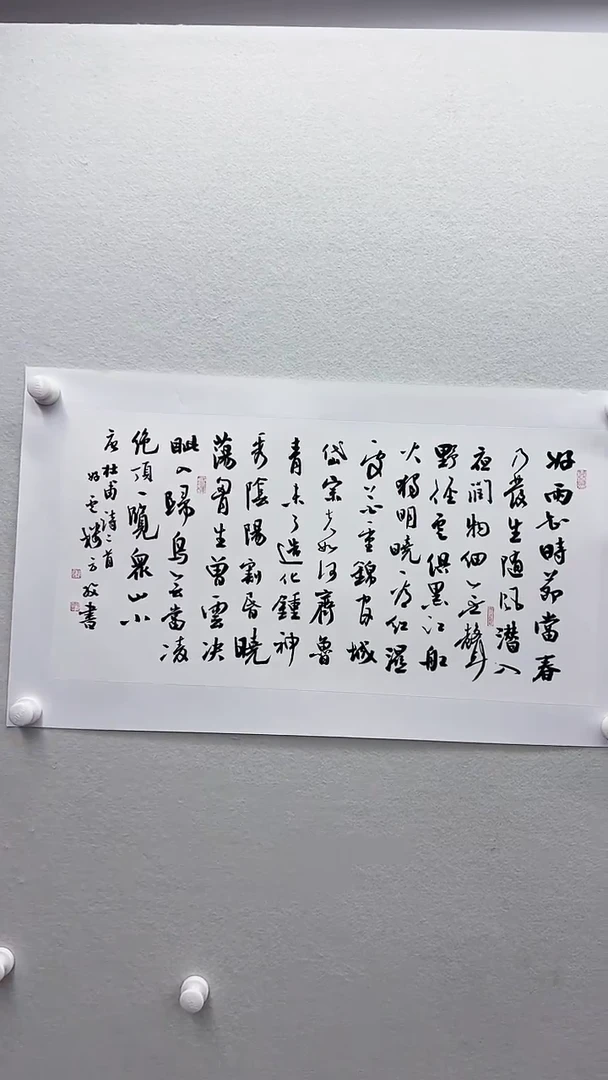 好雨知時節當春
乃發生隨風潛入
夜潤物細無聲
野徑雲俱黑江船
火獨明曉看紅濕
處花重錦官城
岱宗夫如何齊魯
青未了造化鍾神
秀陰陽割昏曉
蕩胷生曾雲决
眦入歸鳥會當凌
絶頂一覽衆山小
唐杜甫詩二首
書